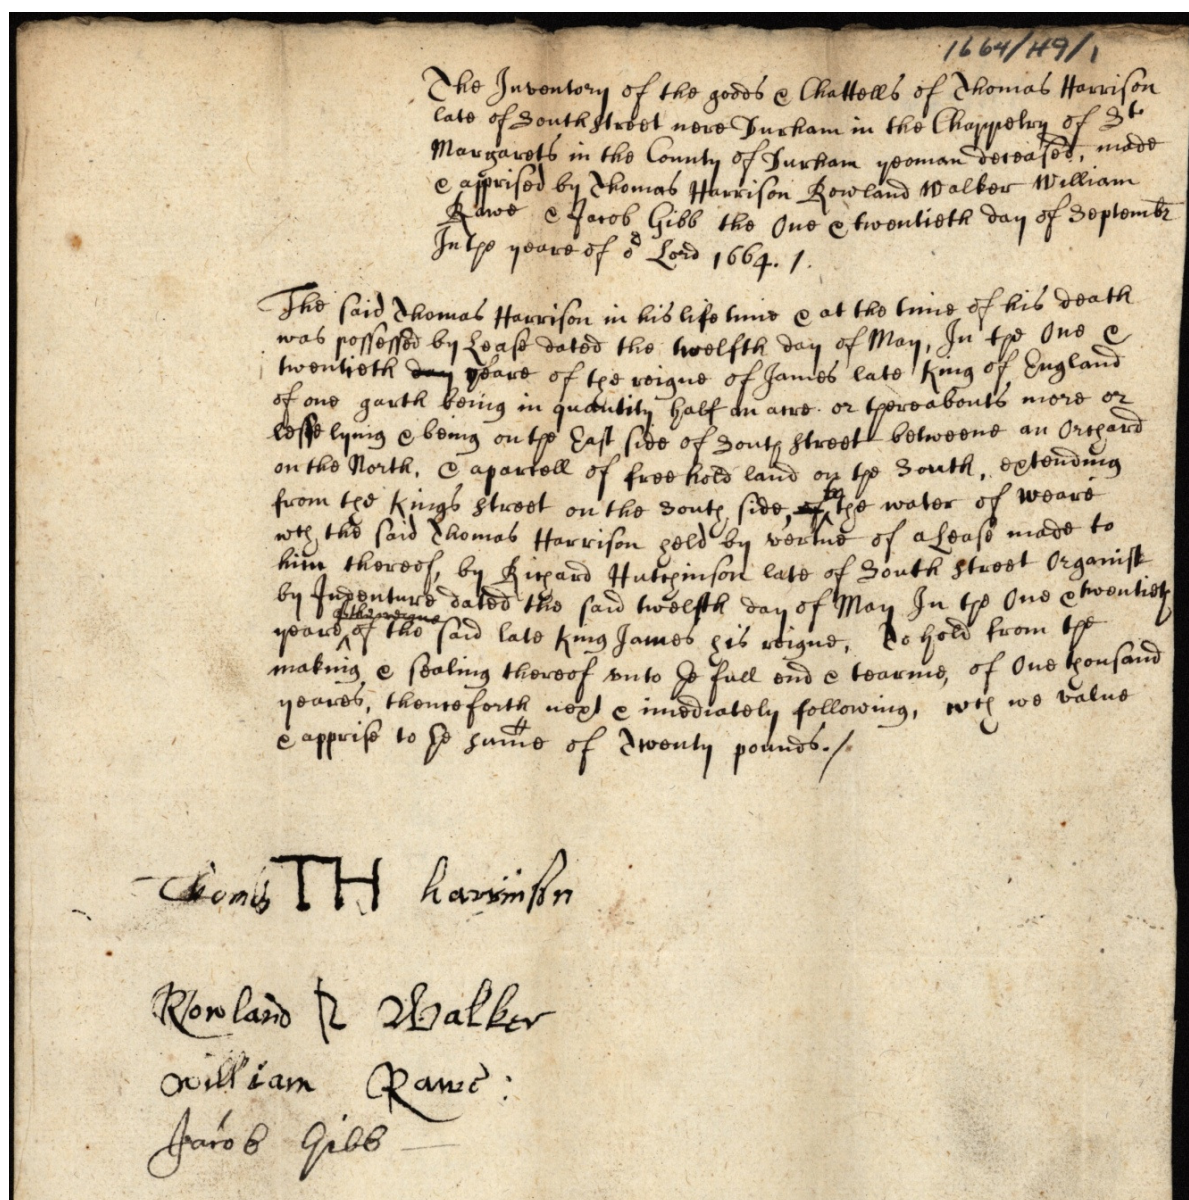 1664/H9/1
The Inventory of the goods & Chattells of Thomas Harrison
late of Southstreet nere Durham in the Chappelry of St
Margarets in the County of Durham yeoman deceased, made
& apprised by Thomas Harrison Rowland Walker William
Rawe & Jacob Gibb the One & twentieth day of Septembr
In the yeare of or Lord 1664. /.
The said Thomas Harrison in his life time & at the time of his death
was possessed by Lease dated the twelfth day of May, In the One &
twentieth day yeare of the reigne of James late King of England
of one garth being in quantity half an acre or thereabouts more or
lesse lying & being on the East side of South street betweene an Orchard
on the North, & a parcell of freehold land on the South, extending
from the Kings street on the South side, of to the water of Weare
wch the said Thomas Harrison held by vertue of a Lease made to
him thereof, by Richard Hutchinson late of South street Organist
by Indenture dated the said twelfth day of May In the One & twentieth
yeare of the reigne of the said late King James his reigne, To hold from the
making & sealing thereof unto the full end & tearme, of One thousand
yeares, thenceforth next & imediately following, wch we value
& apprise to the sume of Twenty pounds. /
Thomas TH harrinson
Rowland R Walker
William Rawe :
Jacob Gibb